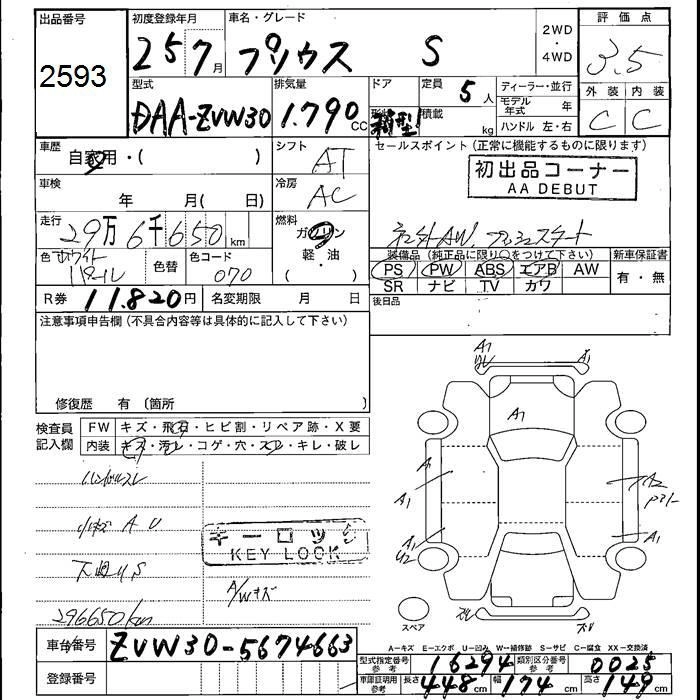 出品番号
2593
初度登録年月
25 7月
車名・グレード
プリウス S
2WD
・
4WD
評価点
3.5
外装 内装
C C
型式
DAA-ZVW30
排気量
1.790 cc
ドア
形状
箱型
定員
5人
積載
kg
ティーラー・並行
モデル年式 年
ハンドル 左・右
車歴
自家用・( )
シフト
AT
セールスポイント(正常に機能するものに限ります)
初出品コーナー
AA DEBUT
車検
年 月( 日)
冷房
AC
走行
29万6千650km
燃料
ガソリン
軽・油
( )
社外AW, プッシュスタート
色 ホワイト
パール
色替
色コード
070
装備品(純正品に限り○をつけて下さい)
PS PW ABS エアB AW
SR ナビ TV カワ
新車保証書
有・無
R券 11.820円
名変期限 月 日
後日品
注意事項申告欄(不具合内容等は具体的に記入して下さい)
修復歴 有(箇所 )
検査員
記入欄
FW キズ・飛石・ヒビ割・リペア跡・X要
内装 キズ・汚レ・コゲ・穴・スレ・キレ・破レ
ハンドルスレ
小キズ A U
下廻りS
296650km
キーロック
KEY LOCK
A/Wキズ
A1
A1
A1
A1
A1
A2
A1
U2
A1
スレ
スペア
A-キズ E-エクボ U-凹み W-補修跡 S-サビ C-腐食 XX-交換済
車台番号
ZVW30-5674663
登録番号
型式指定番号
参考
16294
類別区分番号
参考
0025
車庫証明用
参考
長さ 448cm
幅 174cm
高さ 149cm